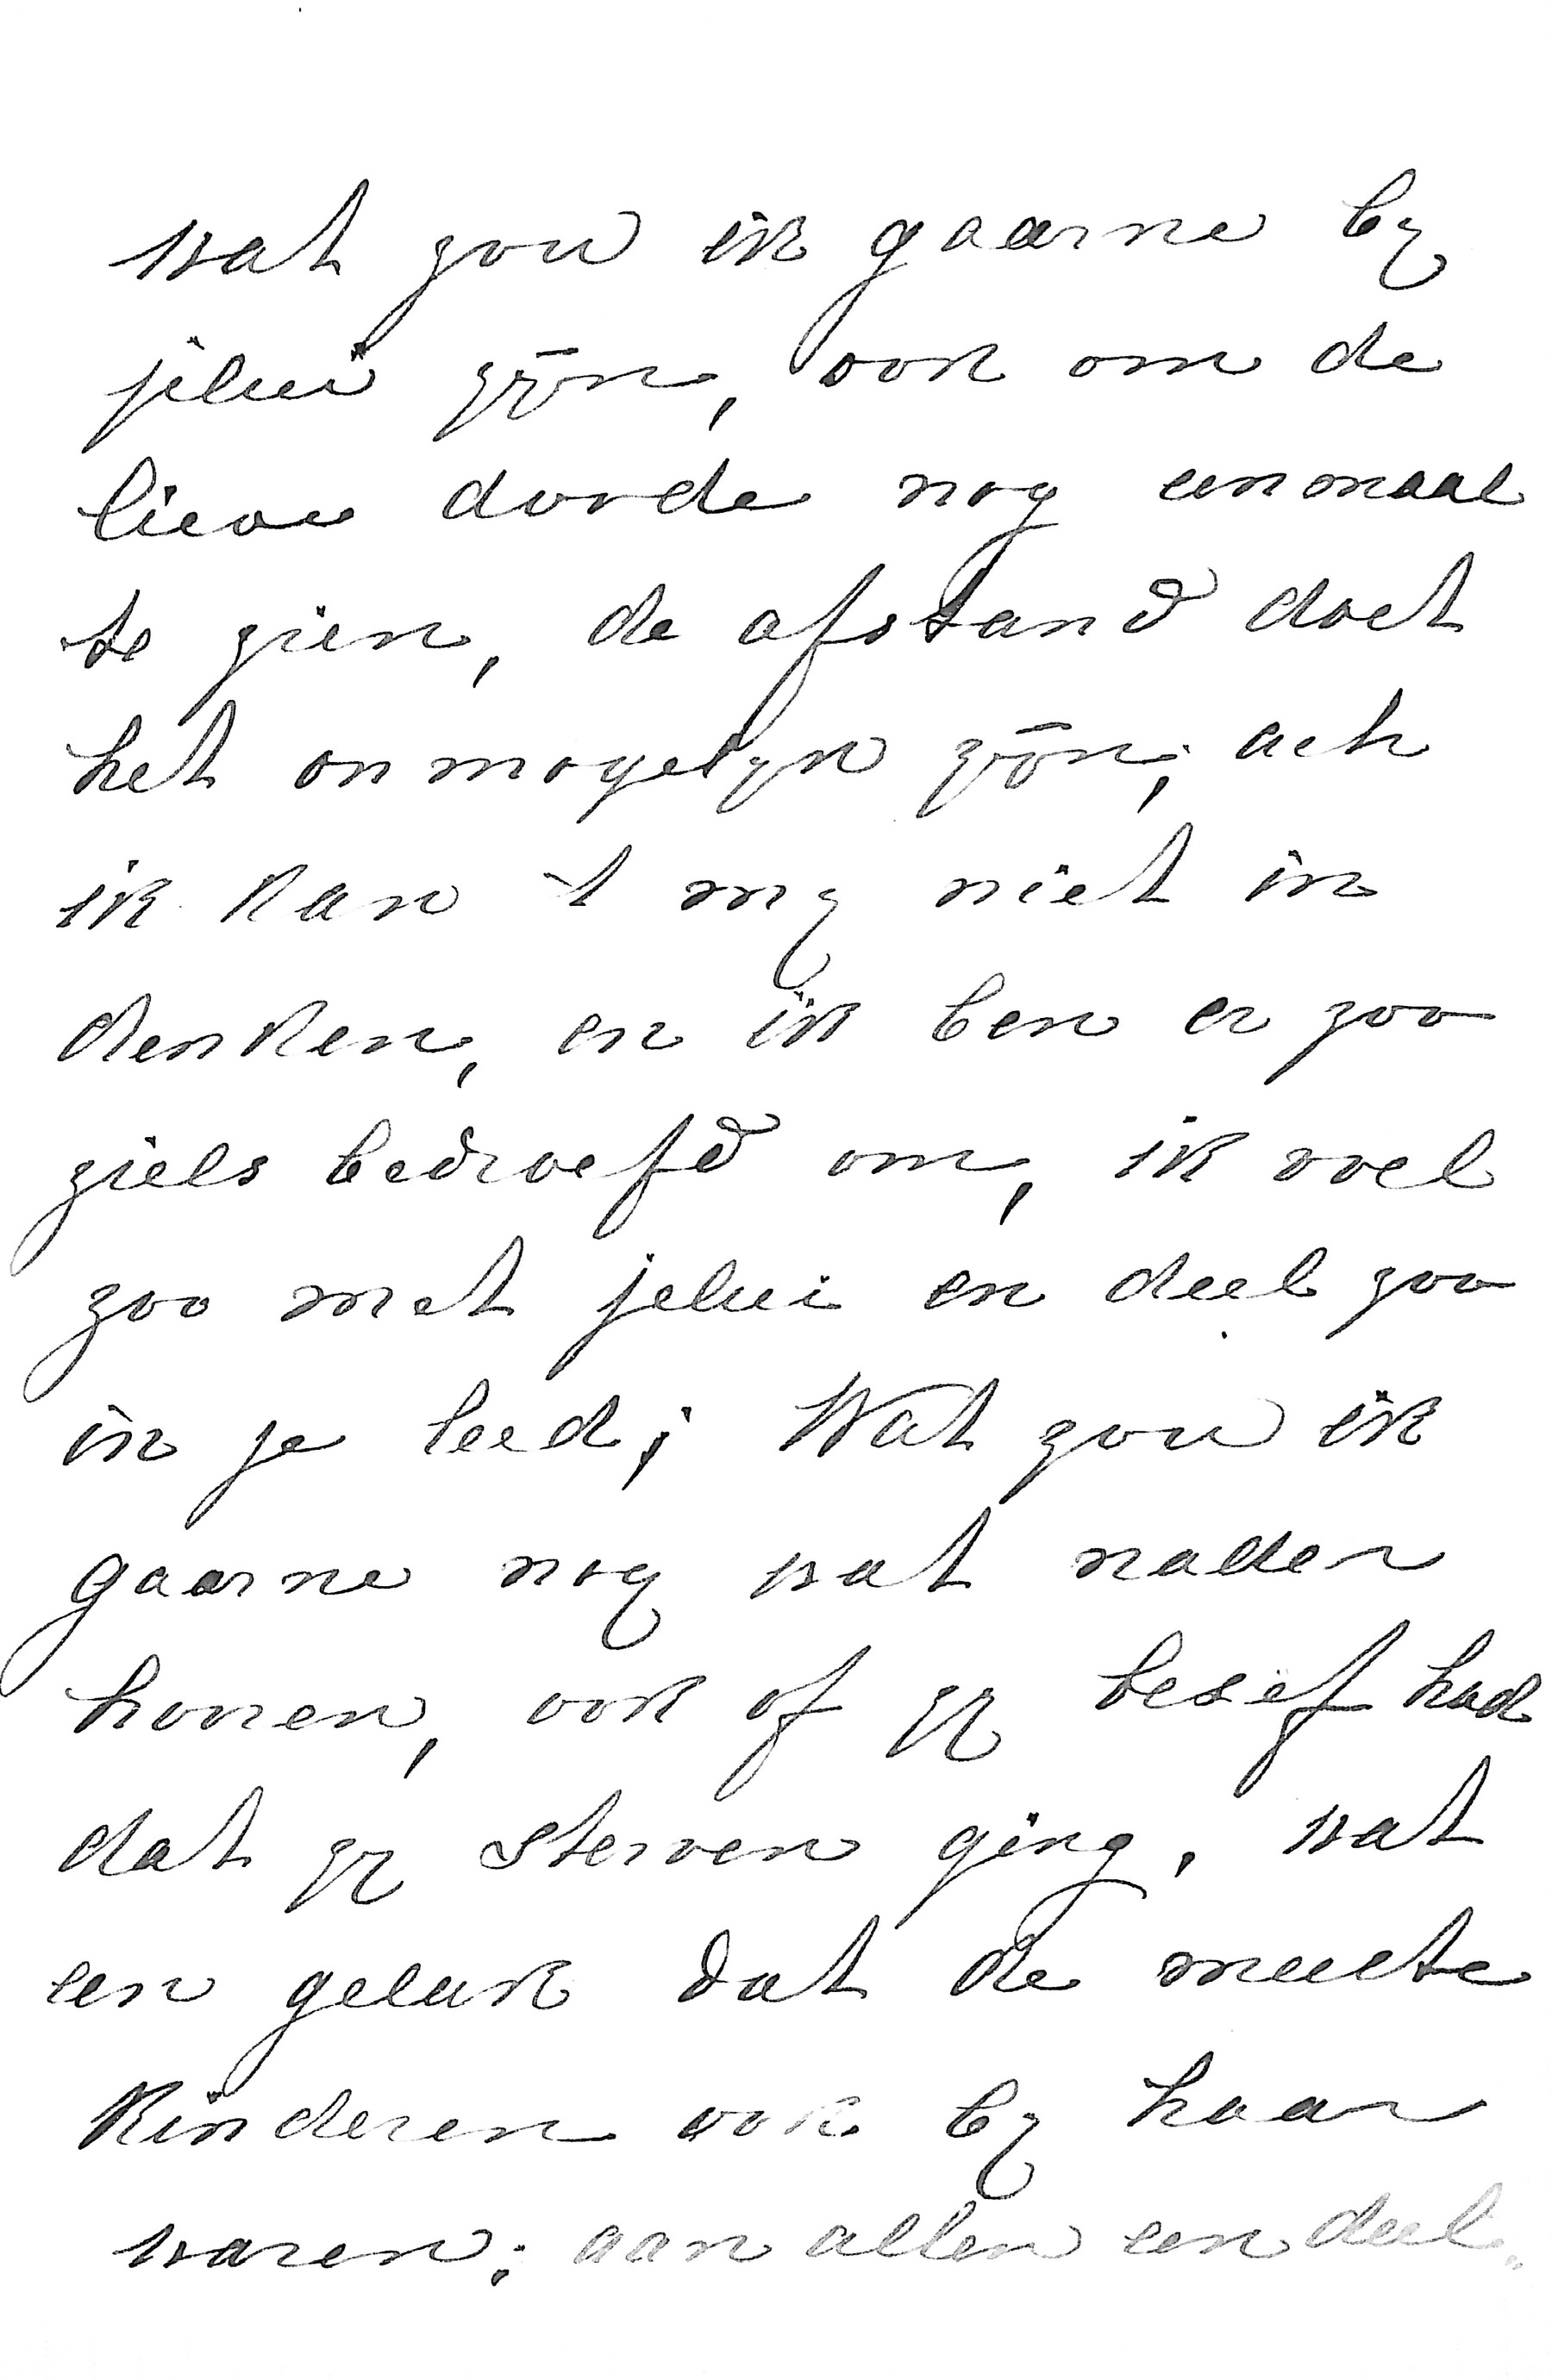 wat zou ik gaarne by
jelui zijn, ook om de
lieve doode nog eenmaal
te zien, de afstand doet
het onmogelyk zijn; ach
ik kan 't my niet in
denken, en ik ben er zoo
ziels bedroefd om, ik voel
zoo met jelui en deel zoo
in je leed; Wat zou ik
gaarne nog wat nader
hooren, ook of zy besef had
dat zy sterven ging, wat
een geluk dat de meeste
kinderen ook by haar
waren; aan allen een deel„